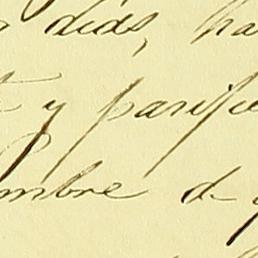 dias, ha
y pacifi
mbre de